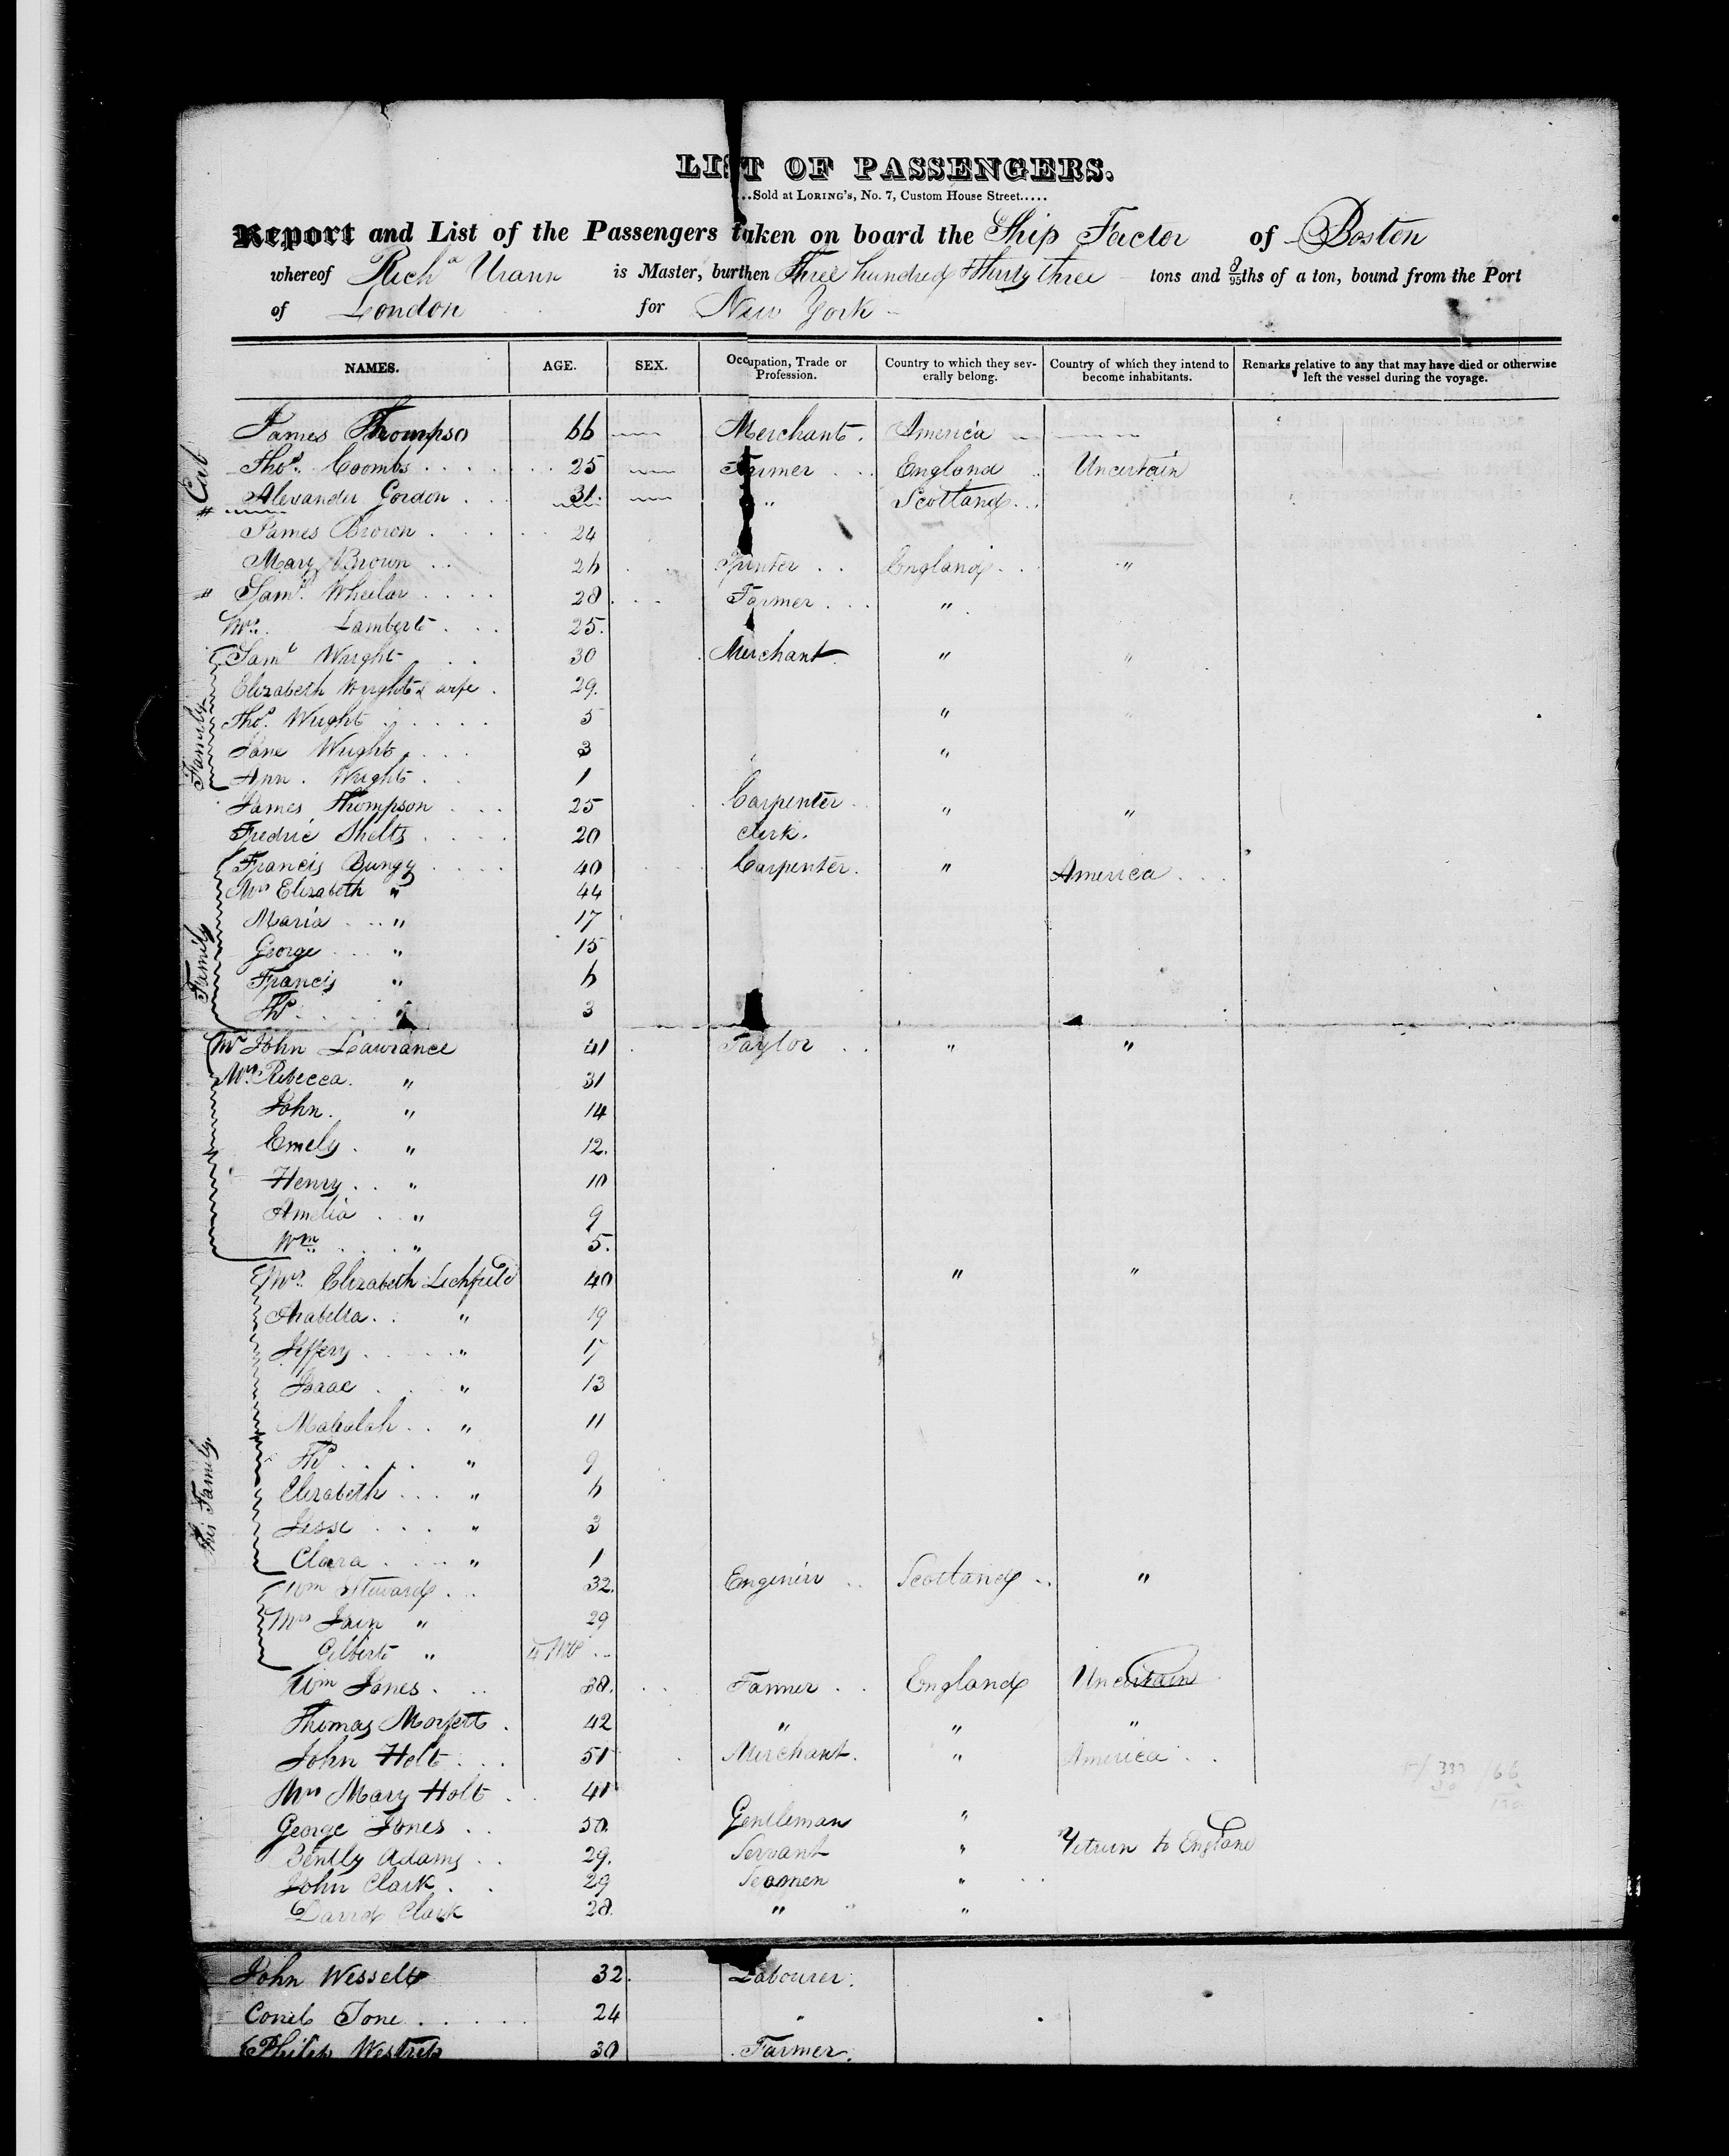 LIST OF PASSENGERS.
..Sold at LORING'S, No. 7, Custom House Street.....
Report and List of the Passengers taken on board the Ship Factor of Boston
whereof Richd Urann is Master, burthen Three hundred & thirty three tons and 8/95ths of a ton, bound from the Port
of London for New York
NAMES. AGE. SEX. Occupation, Trade or Profession. Country to which they severally belong. Country of which they intend to become inhabitants. Remarks relative to any that may have died or otherwise left the vessel during the voyage.
James Thompso 66 Merchant. America
Thos. Coombs 25 Farmer England Uncertain
Alexander Gordon 31. " Scotland
James Brown 24
Mary Brown 26 England "
# Saml. Wheelar 28 Farmer "
Mrs. Lambert 25.
Saml Wright 30 Merchant " "
Elizabeth Wright & wife 29.
Thos. Wright 5 "
Jane Wright 3 "
Ann. Wright 1
Family
James Thompson 25 Carpenter " "
Fredric Shelts 20 Clerk.
Francis Bungy 40 Carpenter. " America
Mrs Elizabeth " 44
Maria " 17
George " 15
Francis " 6
Thos " 3
Family
Mr John Lawrance 41 Taylor " "
Mrs. Rebecca. " 31
John. " 14
Emely. " 12.
Henry " 10
Amelia " 9
Wm " 5.
Mrs. Elizabeth Lichfield 40 " "
Arabella " 19
Jeffery " 17
Isaac " 13
Mahalah " 11
Thos " 9
Elizabeth " 6
Jesse " 3
Clara " 1
This Family.
Wm Steward 32. Enginier Scotland "
Mrs Jain " 29
Gilbert " 4 Mo
Wm Jones 38. Farmer England Uncertain
Thomas Morfett 42 " " "
John Holt 51 Merchant. " America
Mrs Mary Holt 41
George Jones 50 Gentleman "
Bently Adams 29. Servant " Return to England
John Clark 29 Seamen "
David Clark 28. " "
John Wesselt 32. Labourer.
24 "
Philip Westrip 30 Farmer.